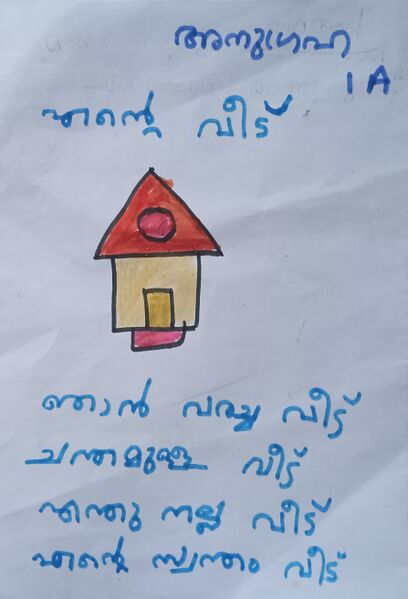 അനുഗ്രഹ
1 A
എന്റെ വീട്
ഞാൻ വരച്ച വീട്
ചന്തമുള്ള വീട്
എന്തു നല്ല വീട്
എന്റെ സ്വന്തം വീട്